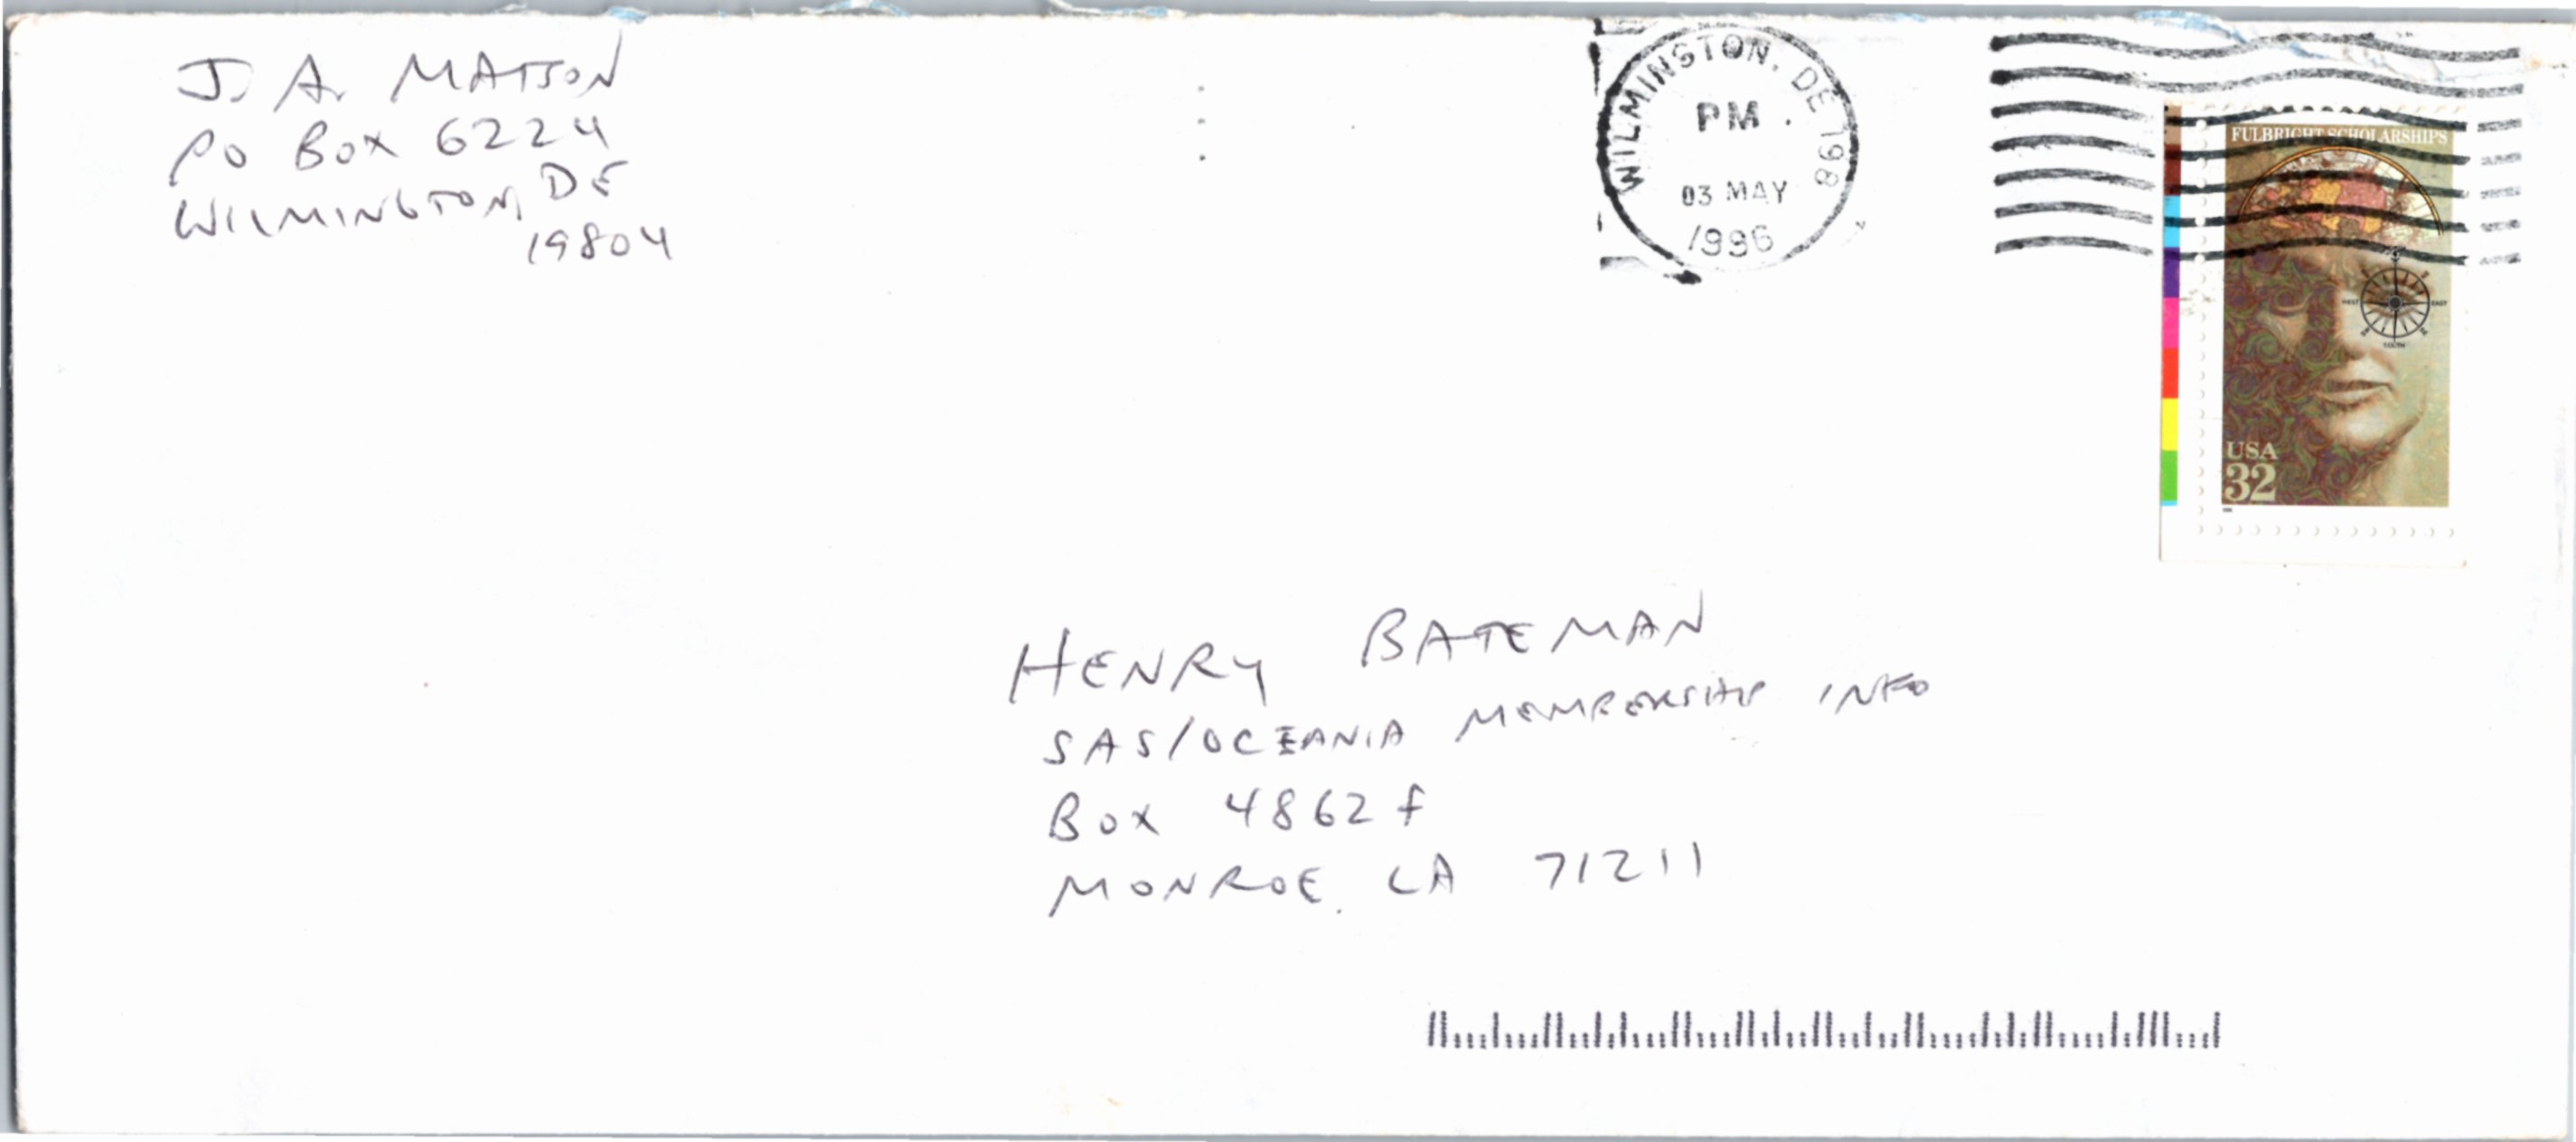 J. A. MATSON
PO BOX 6224
WILMINGTON, DE
19804
WILMINGTON, DE 198
PM
03 MAY
1996
FULBRIGHT SCHOLARSHIPS
WEST
EAST
SOUTH
USA
32
HENRY BATEMAN
SAS/OCEANIA MEMBERSHIP INFO
BOX 4862f
MONROE, LA 71211